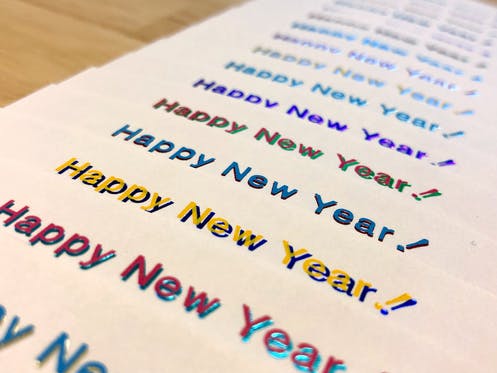 Happy New Year
Happy New Year!
Happy New Year!
Happy New Year!
Happy New Year!
Happy New Year!!
Happy New Year!
Happy New Year!!
Happy New Year
py Ne